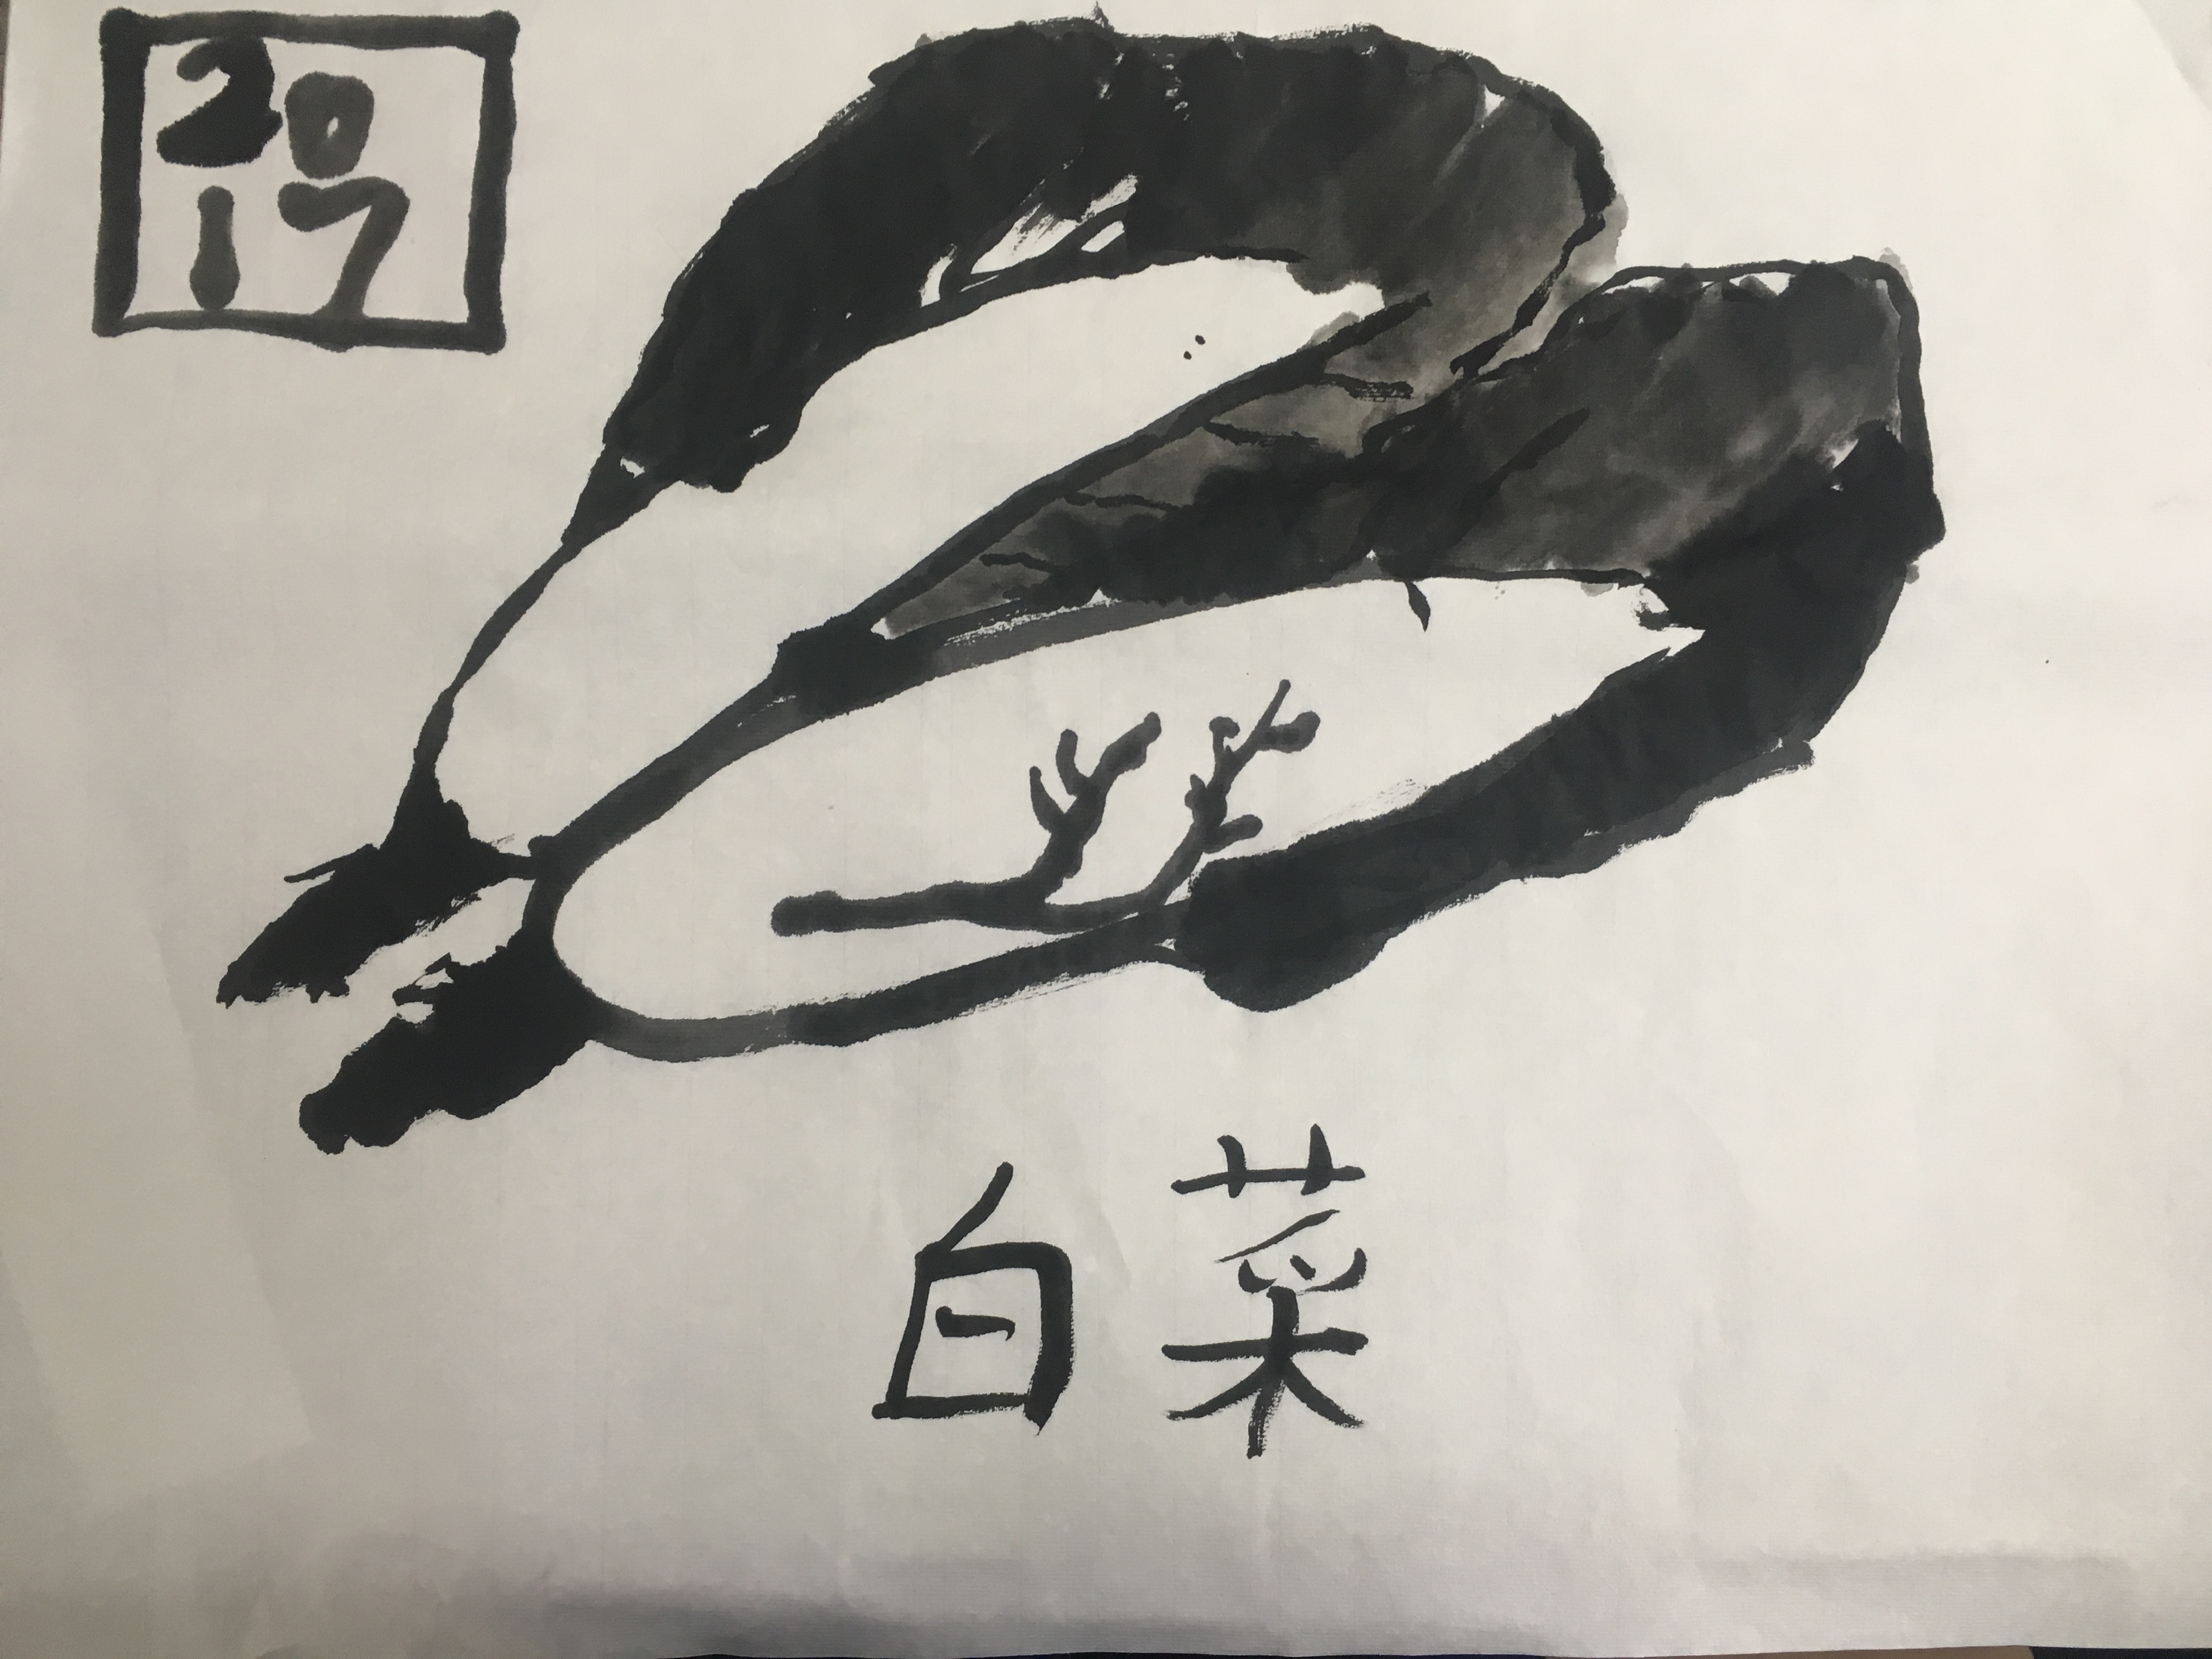 20
17
白菜